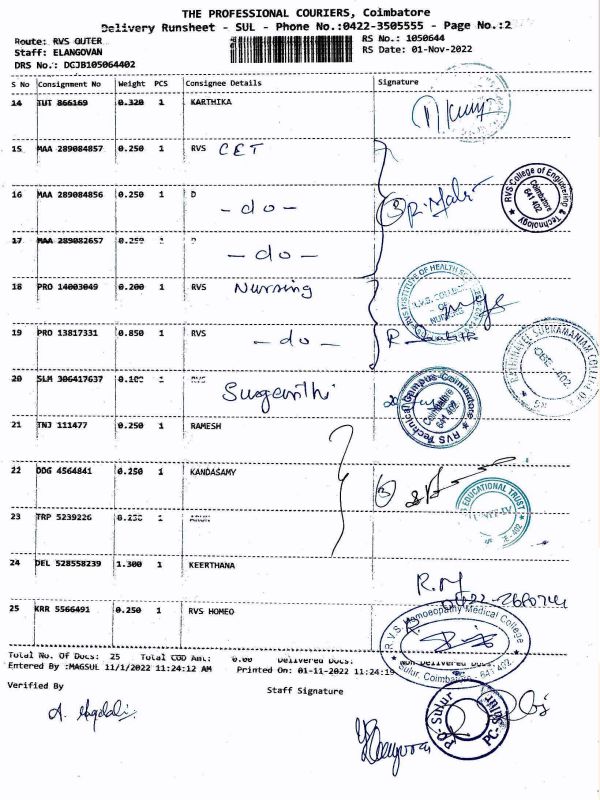 THE PROFESSIONAL COURIERS, Coimbatore
Delivery Runsheet - SUL - Phone No.:0422-3505555 - Page No.:2
Route: RVS OUTER
RS No.: 1050644
Staff: ELANGOVAN
RS Date: 01-Nov-2022
DRS No.: DCJB105064402
S No Consignment No Weight PCS Consignee Details Signature
14 TUT 866169 0.320 1 KARTHIKA
15 MAA 289084857 0.250 1 RVS CET
16 MAA 289084856 0.250 1 D
- do -
17 MAA 289082657 0.250 1
- do -
18 PRO 14003049 0.200 1 RVS Nursing
19 PRO 13817331 0.850 1 RVS - do -
20 SLM 306417637 0.100 1 RVS
Suganthi
21 TNJ 111477 0.250 1 RAMESH
22 DDG 4564841 0.250 1 KANDASAMY
23 TRP 5239226 0.250 1 ARUN
24 DEL 528558239 1.300 1 KEERTHANA
25 KRR 5566491 0.250 1 RVS HOMEO
RVS College of Engineering & Technology
Coimbatore
641 402
RVS INSTITUTE OF HEALTH
RATHNAVEL SUBRAMANIAM COLLEGE
RVS Technical Campus-Coimbatore
Coimbatore
641 402
EDUCATIONAL TRUST
R.V.S. Homoeopathy Medical College
Sulur, Coimbatore - 641 402
Total No. Of Docs: 25 Total COD Amt: 0.00 Delivered Docs: Non Delivered Docs:
Entered By :MAGSUL 11/1/2022 11:24:12 AM Printed On: 01-11-2022 11:24:19
Verified By
Staff Signature
P.O- Sulur